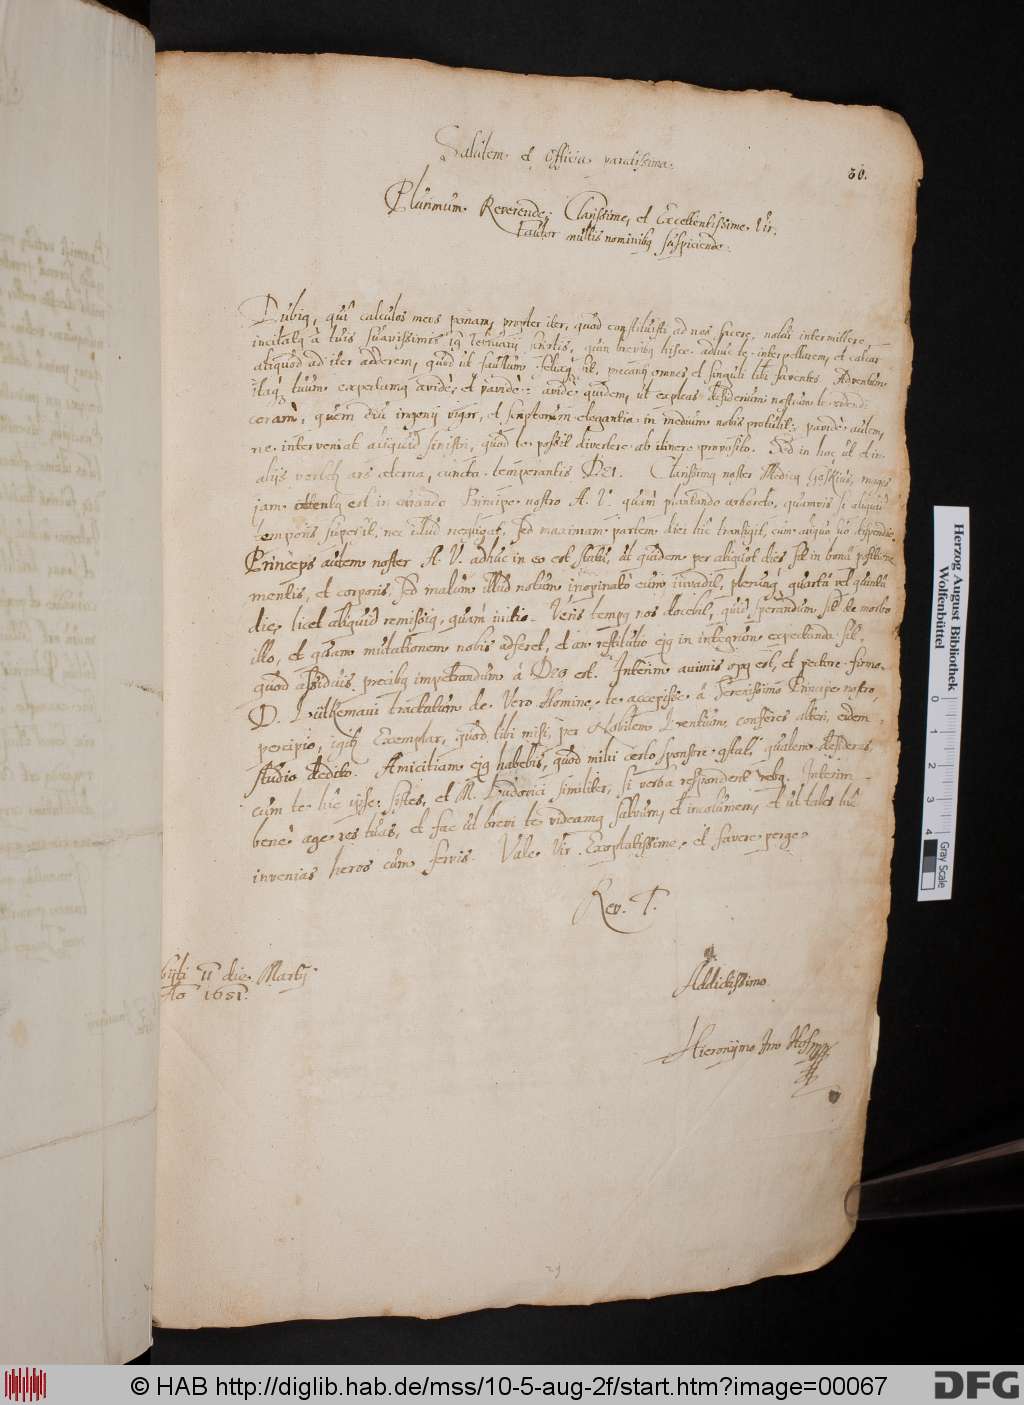 Salutem et officia paratissima.
30.
Plurimum Reverende, Clarissime, et Excellentissime Vir,
Fautor multis nominibq suspiciende.
Dubiq, quî calculos meos ponam, propter iter, quod constituisti ad nos facere, nolui intermittere,
incitatq à tuis suavissimis 19 Februarij scriptis, quin brevibq hisce adhuc te interpellarem, et calcar
aliquod ad iter adderem, quod ut faustum, felixq sit, precamur omnes, et singuli tibi faventes. Adventum
itaq tuum expectamq avidè, et pavidè: avidè quidem, ut expleas desiderium nostrum te videndi
coram, quem diu ingenij vigor, et scriptorum elegantia in medium nobis protulit; pavidè autem,
ne interveniat aliquid sinistri, quod te possit divertere ab itinere proposito. Sed in hoc, ut et in
alijs vertet ars æterna, cuncta temperantis DEI. Clarissimq noster Medicq magis
jam attentq est in curando Principe nostro A. V. quàm plantando arboreto, quamvis si aliquid
temporis superit, nec illud negligat. Sed maximam partem diei hîc transigit, cum aliquo suo
Princeps autem noster A. V. adhuc in eo est statu, ut quidem per aliquot dies sit in bonâ
mentis, et corporis, sed malum illud notum inopinatò eum invadit, plerumq quartû vel quintû
die, licet aliquid remissiq, quàm initio. Veris tempq nos docebit, quid sperandum sit de morbo
illo, et quam mutationem nobis adferet, et an restitutio ejq in integrum expectanda sit,
quod assiduis precibq impetrandum à Deo est. Interim animis opq est, et pectore firmo.
D. Lütkemani tractatum de Vero Homine te accepisse à Serenissimo Principe nostro,
percipio, igitur Exemplar, quod tibi misi, per Nobilem conferes alteri, eidem
studio dedito. Amicitiam ejq habebis, quod mihi certo sponsore qstat, qualem desideras,
cum te hîc ipse sistes, et M. Ludovici similiter, si verba respondent rebq. Interim
benè age res tuas, et fac ut brevi te videamq salvum, et incolumem, et ut tales hîc
invenias heros cum servis. Vale Vir Exoptatissime, et favere perge
Rev. T.
11 die Martij
Ao 1651.
Addictissimo
Hieronymo Imhof
29
Herzog August Bibliothek
Wolfenbüttel
0 1 2 3 4
Gray Scale
© HAB http://diglib.hab.de/mss/10-5-aug-2f/start.htm?image=00067
DFG